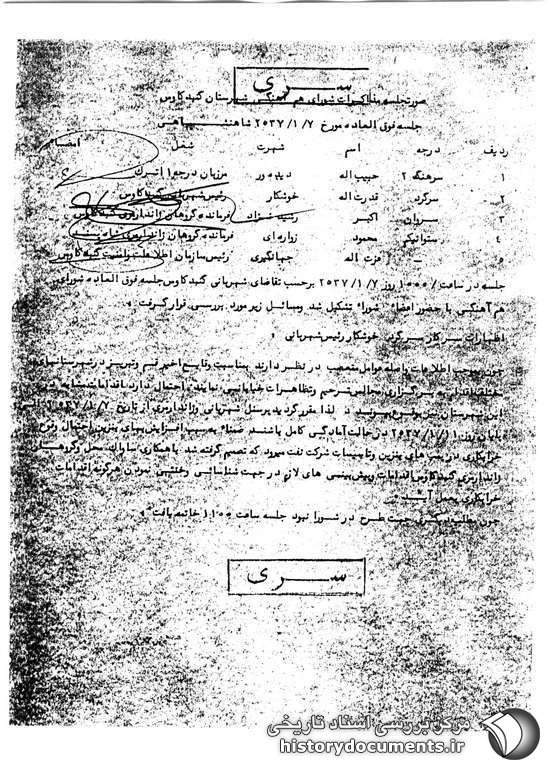 سری
صورتجلسه مذاکرات شورای هم آهنگی شهرستان گنبد کاوس
جلسه فوق العاده مورخ ۲۵۳۷/۱/۷ شاهنشاهی
ردیف درجه اسم شهرت شغل امضاء
۱ سرهنگ ۲ حبیب اله دیده ور مرزبان درجه ۱ اترک
۲ سرگرد قدرت اله خوشکار رئیس شهربانی گنبد کاوس
۳ سروان اکبر رشید نژاد فرمانده گروهان ژاندارمری گنبد کاوس
۴ ستوانیکم محمود زواره ای فرمانده گروهان ژاندارمری
۵ – عزت اله جهانگیری رئیس سازمان اطلاعات و امنیت گنبد کاوس
جلسه در ساعت ۱۰۰۰ روز ۲۵۳۷/۱/۷ برحسب تقاضای شهربانی گنبد کاوس جلسه فوق العاده شورای
هم آهنگی با حضور اعضاء شوراء تشکیل شد و مسائل زیر مورد بررسی قرار گرفت
اظهارات سرکار سرگرد خوشکار رئیس شهربانی
چون بموجب اطلاعات واصله عوامل متعصب در نظر دارند بمناسبت وقایع اخیر قم و تبریز در شهرستانهای
مختلف اقدام به برگزاری مجالس ترحیم و تظاهرات خیابانی نمایند احتمال دارد اقدامات مشابه در
این شهرستان نیز بوقوع بپیوندد لذا مقرر گردید پرسنل شهربانی و ژاندارمری از تاریخ ۲۵۳۷/۱/۷
پایان روز ۲۵۳۷/۱/۱۱ در حالت آمادگی کامل باشند ضمناً به سبب افزایش بهای بنزین احتمال وقوع
خرابکاری در پمپ های بنزین و تاسیسات شرکت نفت میرود که تصمیم گرفته شد با همکاری ساواک محل و گروهان
ژاندارمری گنبد کاوس اقدامات و پیش بینی های لازم در جهت شناسائی و خنثی نمودن هرگونه اقدامات
خرابکاری بعمل آید
چون مطلب دیگری جهت طرح در شورا نبود جلسه ساعت ۱۱۰۰ خاتمه یافت
سری
مرکز بررسی اسناد تاریخی
historydocuments.ir